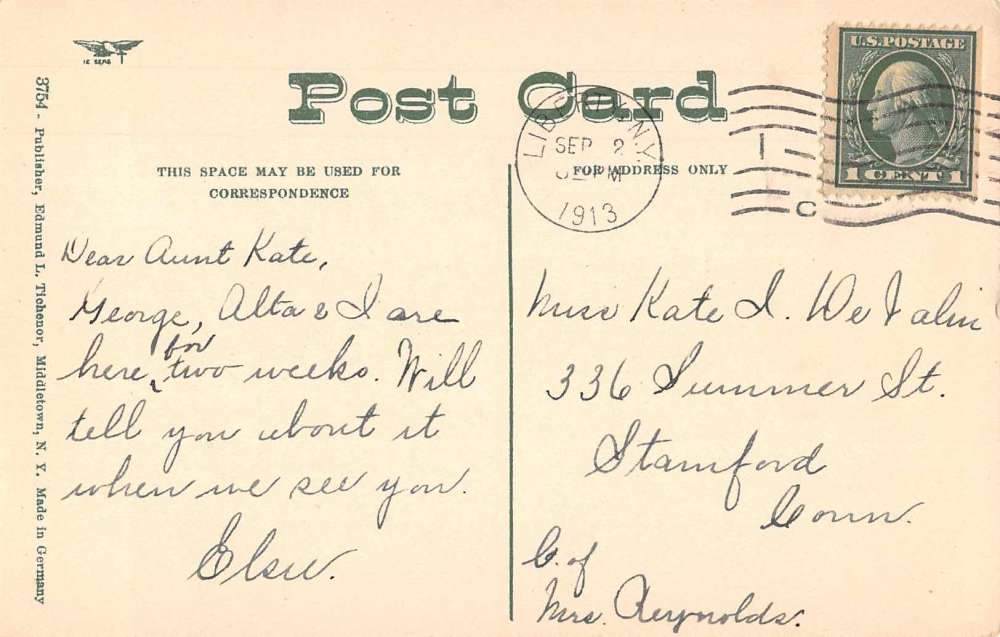 3754 - Publisher, Edmund L. Tichenor, Middletown, N. Y. Made in Germany
Post Card
THIS SPACE MAY BE USED FOR
CORRESPONDENCE
FOR ADDRESS ONLY
LIBERTY N.Y.
SEP 2
PM
1913
U.S. POSTAGE
1 CENT 1
Dear Aunt Kate,
George, Alta & I are
here for two weeks. Will
tell you about it
when we see you.
Elsie.
Miss Kate I. De
336 Summer St.
Stamford
Conn.
C. of
Mrs. Reynolds.